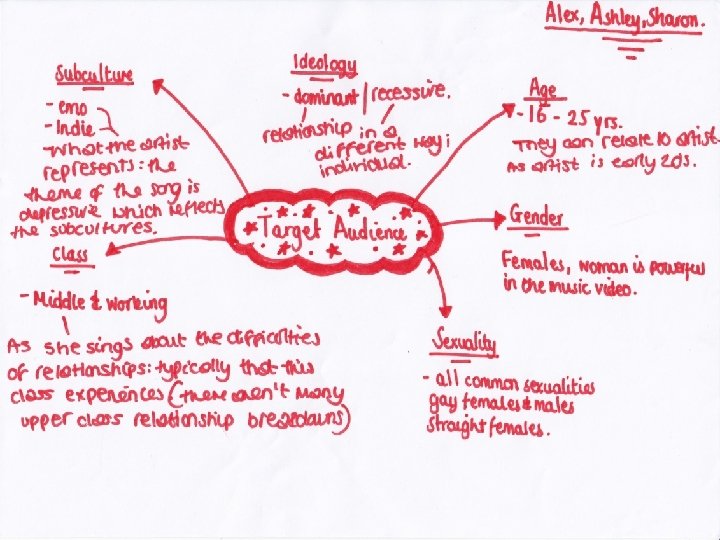 Alex, Ashley, Sharon.
Subculture
- emo
- Indie
what the artist
represents: the
theme of the song is
depressive which reflects
the subcultures.
Ideology
- dominant / recessive.
relationship in a
different way;
individual.
Age
- 16 - 25 yrs.
They can relate to artist
as artist is early 20s.
Target Audience
Gender
Females, woman is powerful
in the music video.
Class
- Middle & working
As she sings about the difficulties
of relationships: typically that this
class experiences (there aren't many
upper class relationship breakdowns)
Sexuality
- all common sexualities
gay females & males
straight females.